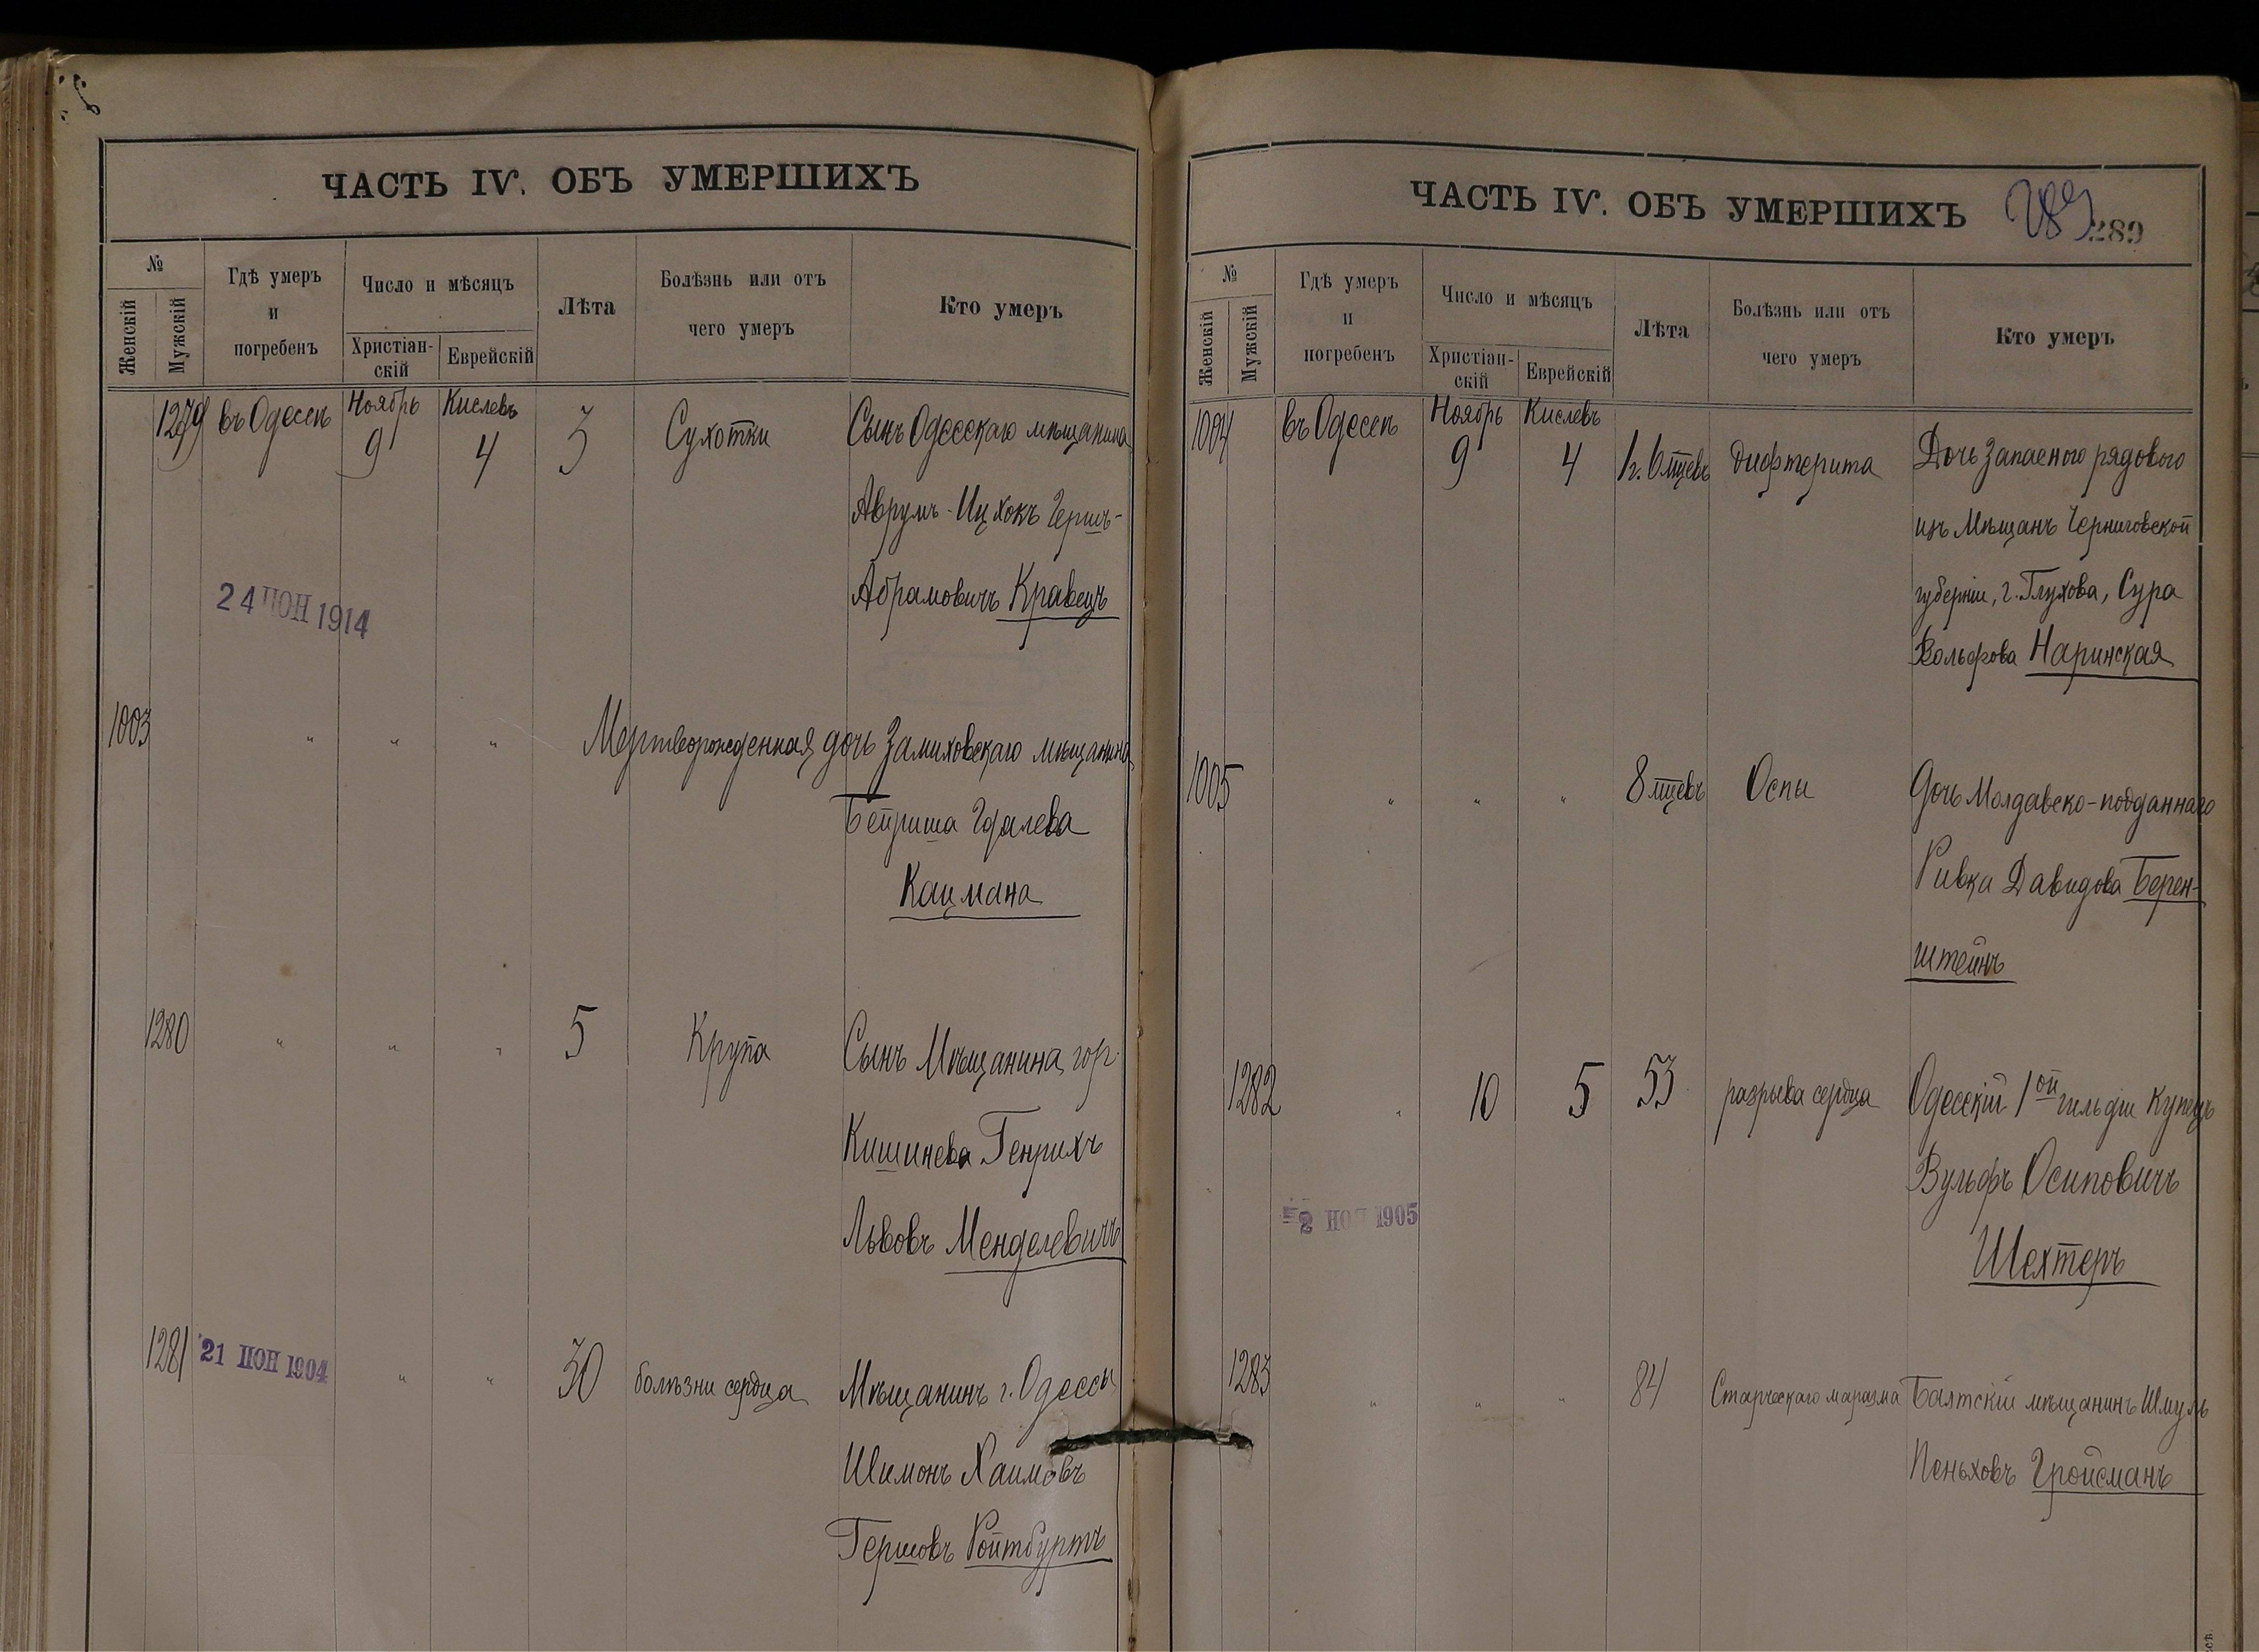 ЧАСТЬ IV. ОБЪ УМЕРШИХЪ
№
Женскій
Мужскій
Гдѣ умеръ
и
погребенъ
Число и мѣсяцъ
Христіан-
скій
Еврейскій
Лѣта
Болѣзнь или отъ
чего умеръ
Кто умеръ
1279 въ Одессѣ Ноябрь 9 Кислевъ 4 3 Сухотки Сынъ Одесскаго мѣщанина
Аврумъ-Ицхокъ Гершъ-
Абрамовичъ Кравецъ
24 НОЯ 1914
1003 " " " Мертворожденная дочь Замиховскаго мѣщанина
Бейриша Гдалева
Кацмана
1280 " " " 5 Крупа Сынъ Мѣщанина гор.
Кишинева Генрихъ
Львовъ Менделевичъ
1281 21 НОЯ 1904 " " 30 болѣзни сердца Мѣщанинъ г. Одессы
Шимонъ Хаимовъ
Гершовъ Ройтбуртъ
ЧАСТЬ IV. ОБЪ УМЕРШИХЪ
289
289
№
Женскій
Мужскій
Гдѣ умеръ
и
погребенъ
Число и мѣсяцъ
Христіан-
скій
Еврейскій
Лѣта
Болѣзнь или отъ
чего умеръ
Кто умеръ
1004 въ Одессѣ Ноябрь 9 Кислевъ 4 1 г. 6 мцевъ дифтерита Дочь Запасного рядового
изъ Мѣщанъ Черниговской
губерніи, г. Глухова, Сура
Вольфова Наринская
1005 " " " 8 мцевъ Оспы Дочь Молдавско-подданнаго
Ривка Давидова Берен-
штейнъ
1282 " 10 5 53 разрыва сердца Одесскій 1ой гильдіи Купецъ
Вульфъ Осиповичъ
Шехтеръ
2 НОЯ 1905
1283 " " " 84 Старческаго маразма Балтскій мѣщанинъ Шмуль
Пеньховъ Гройсманъ